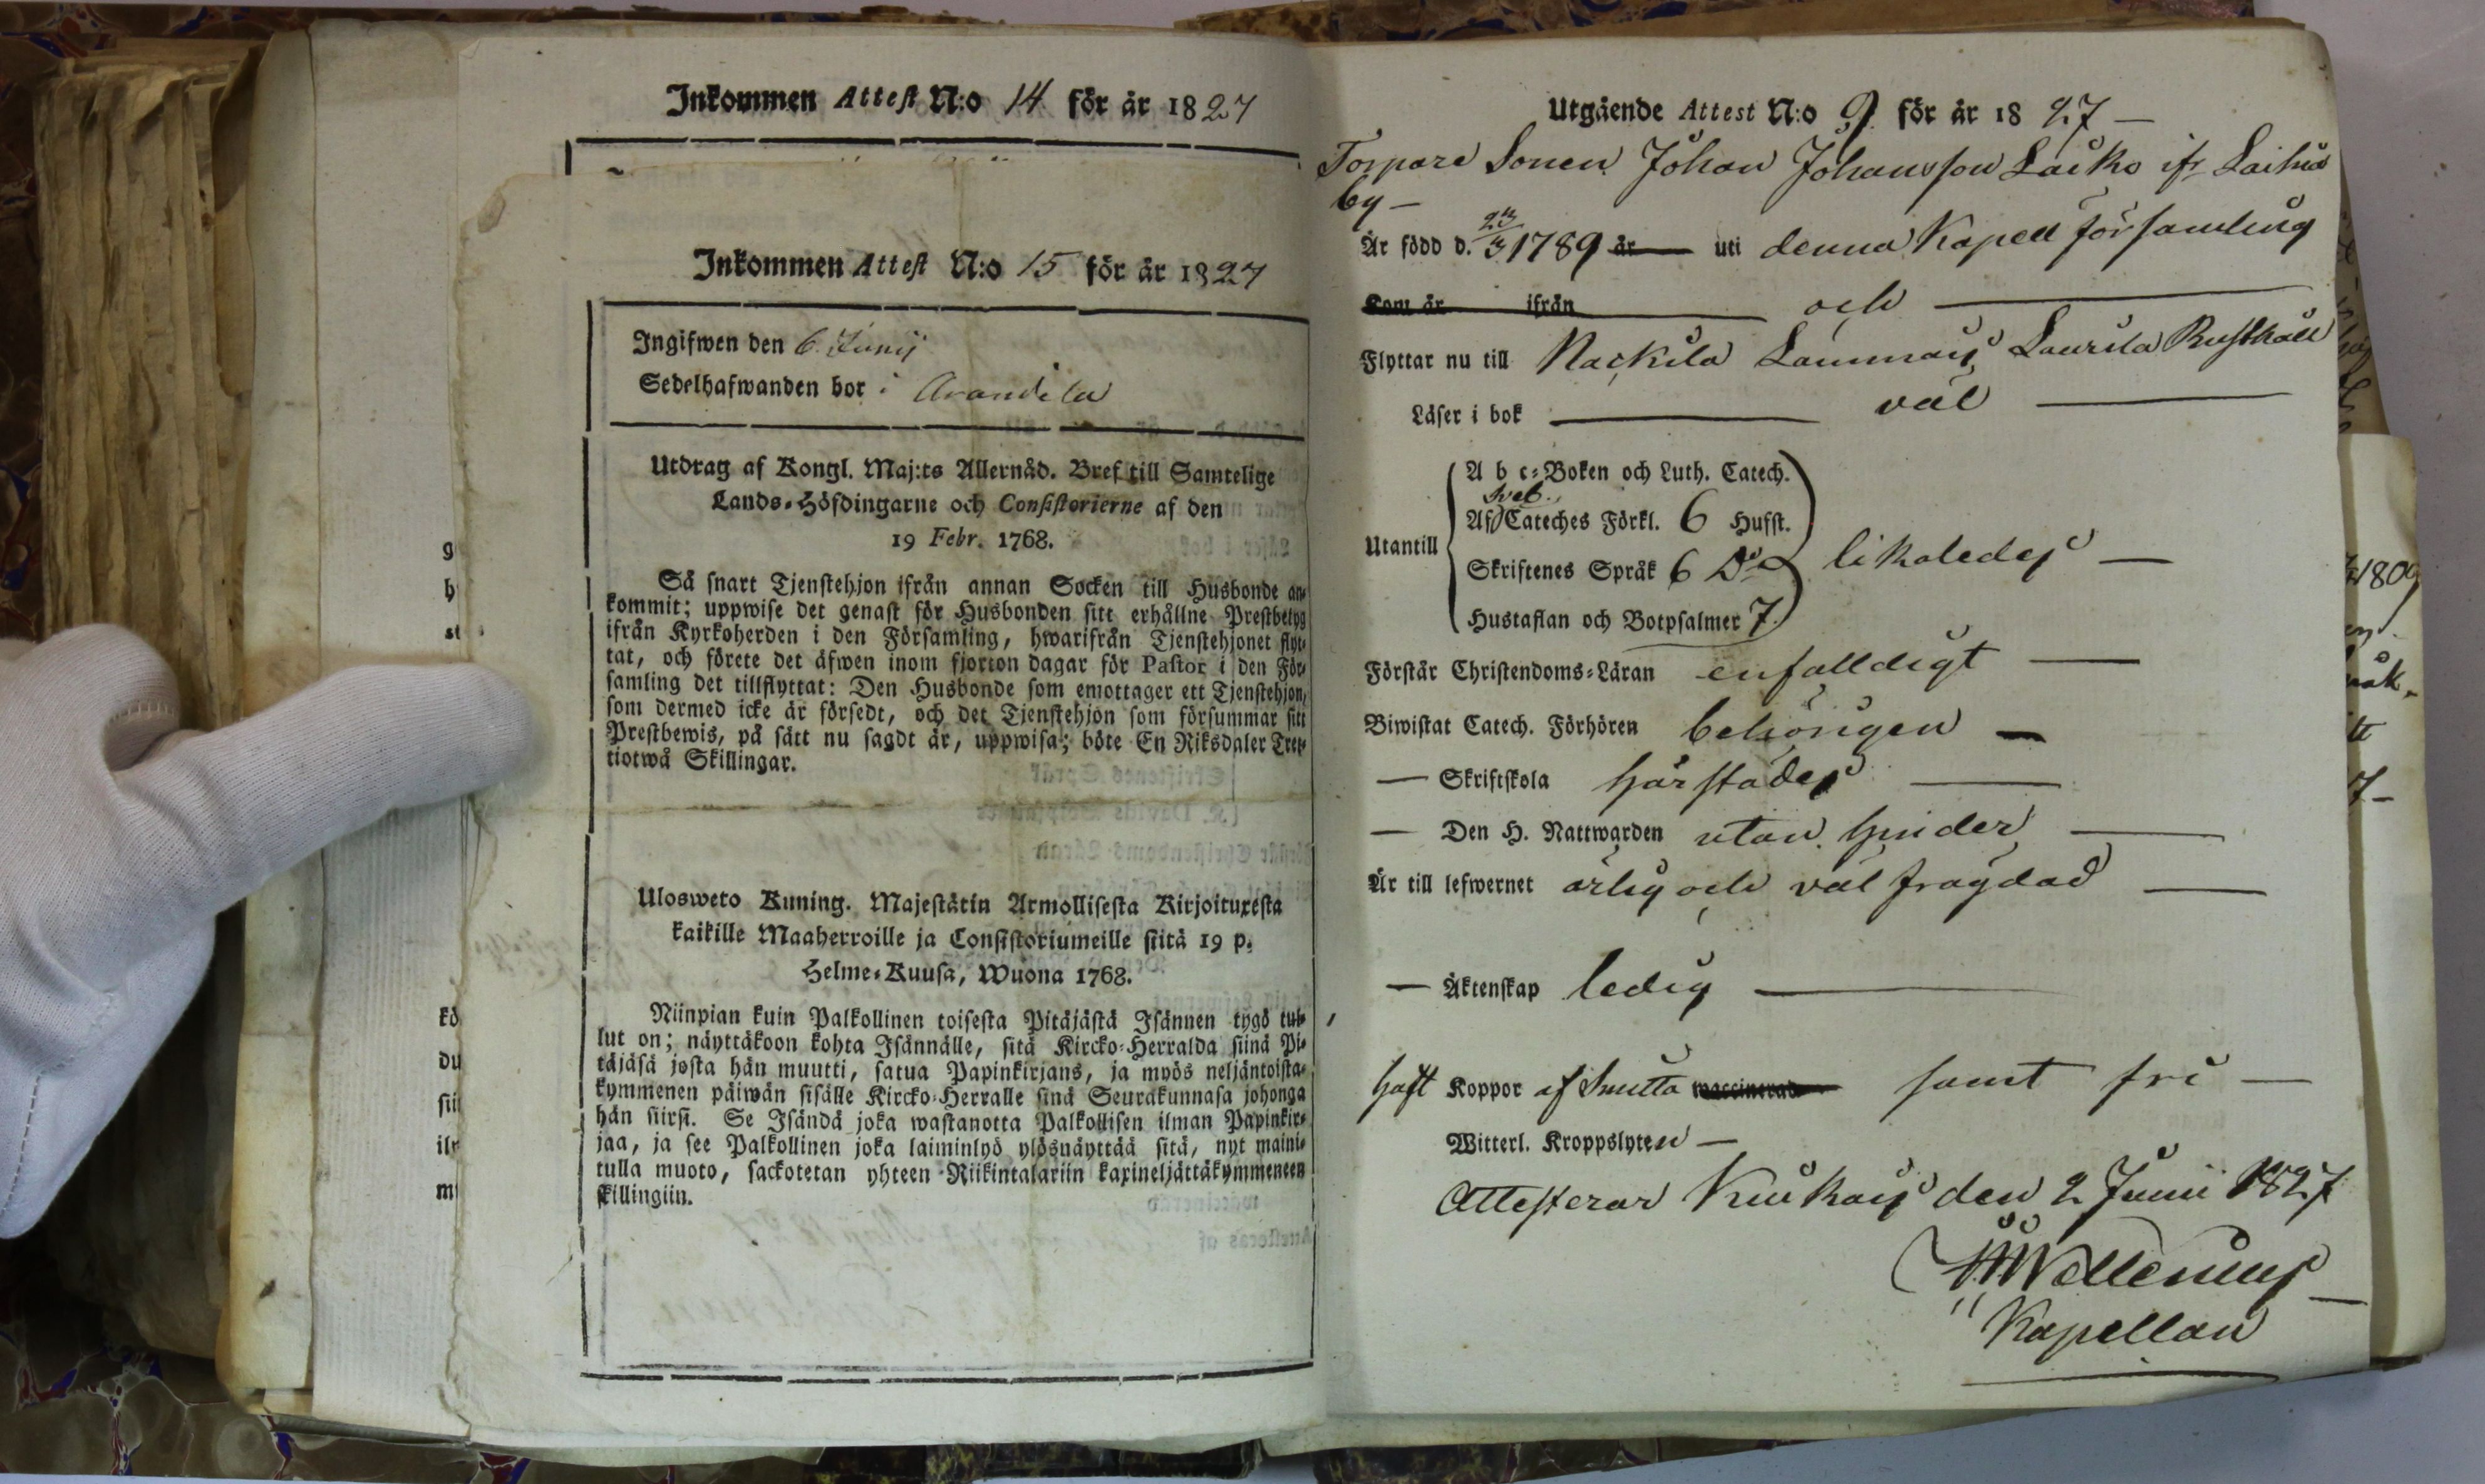 Inkommen Attest N:o 14 för år 1827
Inkommen Attest N:o 15 för år 1827
Ingifwen den 6. Junij
Sedelhafwanden bor i Arandila
Utdrag af Kongl. Maj:ts Allernåd. Bref till Samtelige
Lands-Höfdingarne och Consistorierne af den
19 Febr. 1768.
Så snart Tjenstehjon ifrån annan Socken till Husbonde an-
kommit; uppwise det genast för Husbonden sitt erhållne Prestbetyg
ifrån Kyrkoherden i den Församling, hwarifrån Tjenstehjonet flyt-
tat, och förete det äfwen inom fjorton dagar för Pastor i den För-
samling det tillflyttat: Den Husbonde som emottager ett Tjenstehjon,
som dermed icke är försedt, och det Tjenstehjon som försummar sitt
Prestbewis, på sätt nu sagdt är, uppwisa; böte En Riksdaler Tret-
tiotwå Skillingar.
Ulosweto Kuning. Majestätin Armollisesta Kirjoituxesta
kaikille Maaherroille ja Consistoriumeille siitä 19 p.
Helme-Kuusa, Wuona 1768.
Niinpian kuin Palkollinen toisesta Pitäjästä Isännen tygö tul-
lut on; näyttäkoon kohta Isännälle, sitä Kircko-Herralda siinä Pi-
täjäsä josta hän muutti, satua Papinkirjans, ja myös neljäntoista-
kymmenen päiwän sisälle Kircko-Herralle sinä Seurakunnasa johonga
hän siirsi. Se Isändä joka wastanotta Palkollisen ilman Papinkir-
jaa, ja see Palkollinen joka laiminlyö ylösnäyttää sitä, nyt maini-
tulla muoto, sackotetan yhteen Riikintalariin kaxineljättäkymmeneen
skillingiin.
Utgående Attest N:o 9 för år 1827 —
Torpare Sonen Johan Johansson Laiko ifr Laihia
by —
Är född d. 23/3 1789 år — uti denna Kapell församling
Kom år ifrån och
Flyttar nu till Nackila Lammais Laurila Rusthåll
Läser i bok väl
A b c-Boken och Luth. Catech.
Sveb.
Af Cateches Förkl. 6 Hufst.
Utantill
Skriftenes Språk 6 Do likaledes —
Hustaflan och Botpsalmer 7.
Förstår Christendoms-Läran enfalldigt —
Biwistat Catech. Förhören behörigen —
— Skriftskola härstädes —
— Den H. Nattwarden utan hinder —
Är till lefwernet ärlig och väl frägdad —
— Äktenskap ledig —
haft Koppor af Smitta waccinerad samt fri —
Witterl. Kroppslyten —
Attesterar Kiukais den 2 Junii 1827
Kapellan